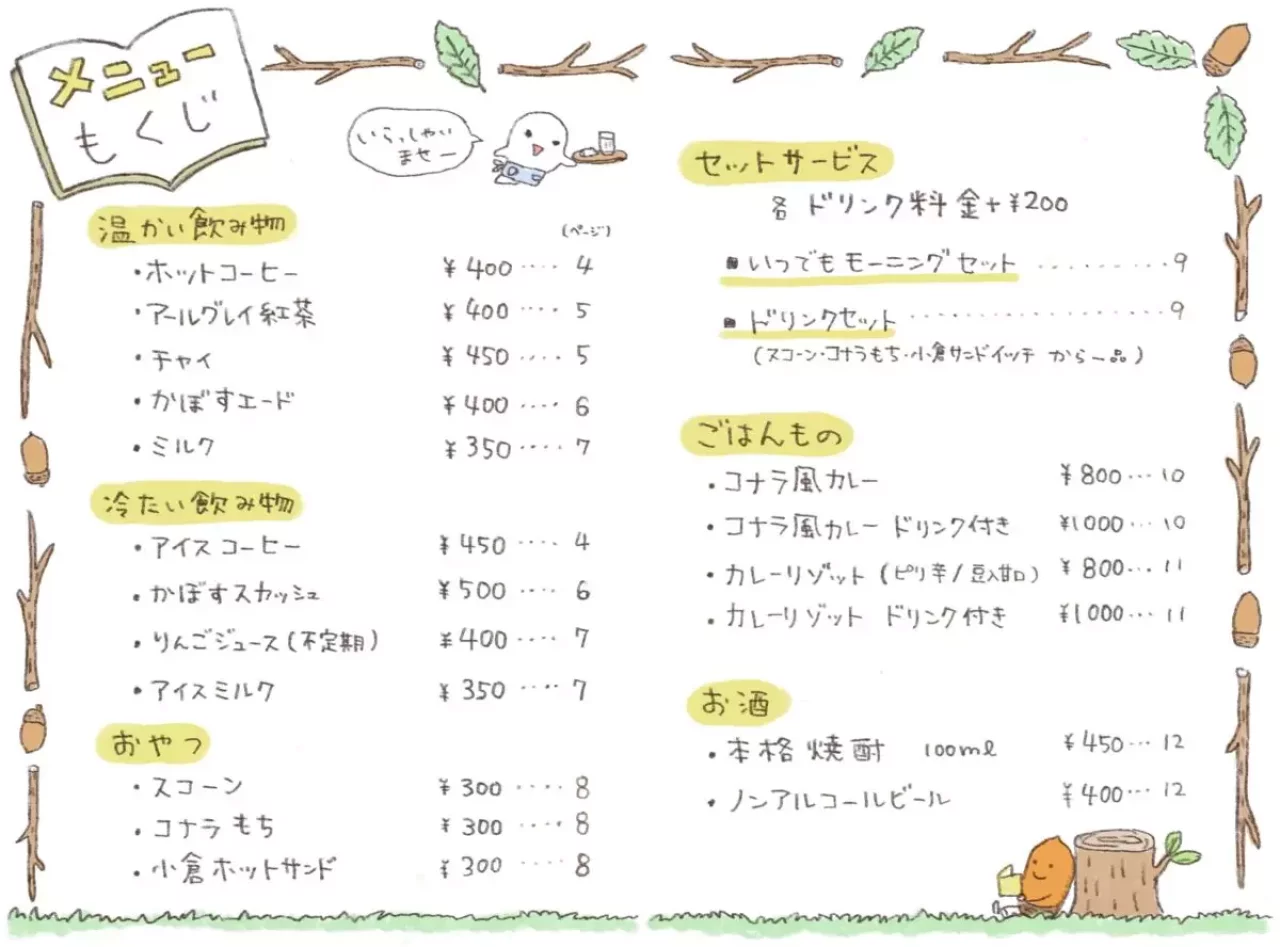 メニュー
もくじ
いらっしゃい
ませー
温かい飲み物
(ページ)
・ホットコーヒー ¥400 ････ 4
・アールグレイ紅茶 ¥400 ････ 5
・チャイ ¥450 ････ 5
・かぼすエード ¥400 ････ 6
・ミルク ¥350 ････ 7
冷たい飲み物
・アイスコーヒー ¥450 ････ 4
・かぼすスカッシュ ¥500 ････ 6
・りんごジュース(不定期) ¥400 ････ 7
・アイスミルク ¥350 ････ 7
おやつ
・スコーン ¥300 ････ 8
・コナラもち ¥300 ････ 8
・小倉ホットサンド ¥300 ････ 8
セットサービス
各 ドリンク料金+¥200
■いつでもモーニングセット ･････････ 9
■ドリンクセット ･････････････････ 9
(スコーン・コナラもち・小倉サンドイッチ から一品)
ごはんもの
・コナラ風カレー ¥800 ･･･ 10
・コナラ風カレー ドリンク付き ¥1000 ･･･ 10
・カレーリゾット (ピリ辛/豆入甘口) ¥800 ･･･ 11
・カレーリゾット ドリンク付き ¥1000 ･･･ 11
お酒
・本格焼酎 100ml ¥450 ･･･ 12
・ノンアルコールビール ¥400 ･･･ 12